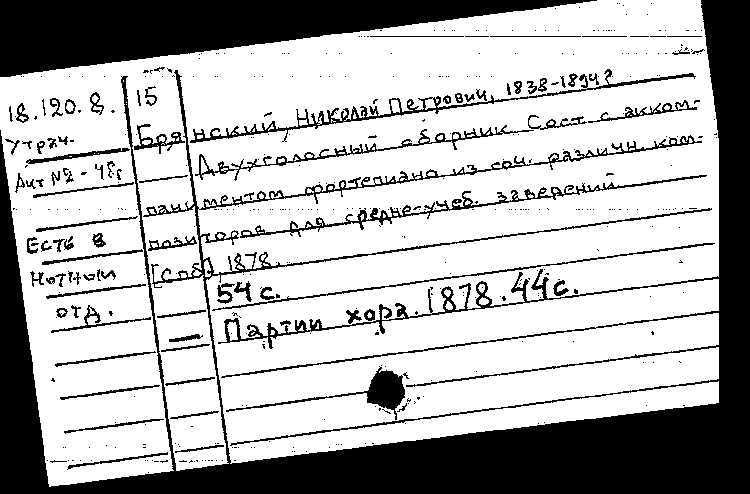 18.120.8.
15
Утрач.
Акт №2-48г
Есть в
Нотном
отд.
Брянский, Николай Петрович, 1838-1894?
Двухголосный сборник Сост. с акком-
паниментом фортепиано из соч. различн. ком-
позиторов для средне-учеб. заведений
[Спб], 1878.
54 с.
— Партии хора. 1878. 44 с.